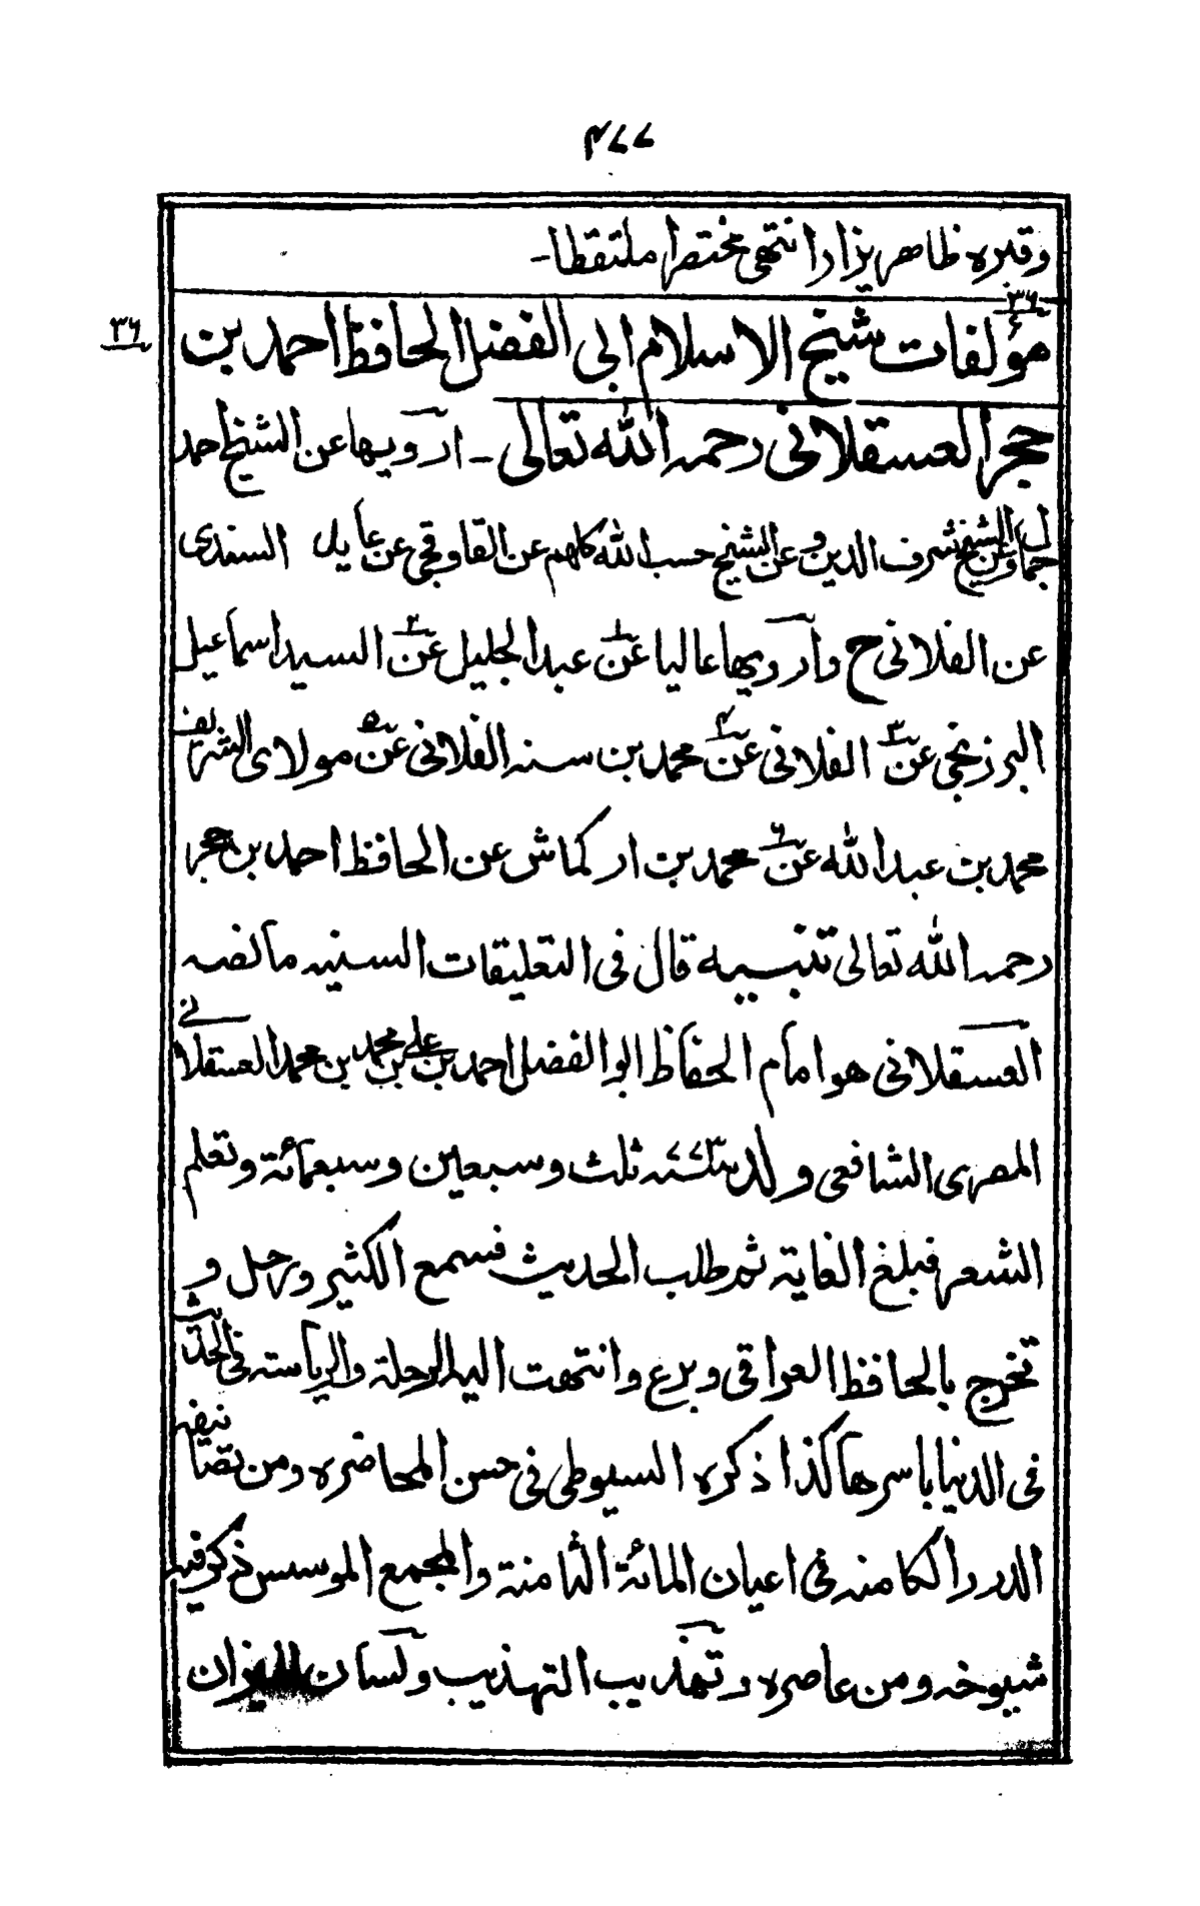 ٤٧٧
وقبره ظاهر يزار انتهى مختصرا ملتقطا-
٣٦
٣٦
مؤلفات شيخ الاسلام ابى الفضل الحافظ احمد بن
حجر العسقلانى رحمه الله تعالى - ارويها عن الشيخ احمد
جمال وعن الشيخ شرف الدين وعن الشيخ حسب الله كلهم عن القاوقجى عن عابد السندى
عن الفلانى ح وارويها عاليا عن١ عبد الجليل عن٢ السيد اسماعيل
البرزنجى عن٣ الفلانى عن٤ محمد بن سنه الفلانى عن٥ مولاى الشريف
محمد بن عبد الله عن٦ محمد بن اركماش عن الحافظ احمد بن حجر
رحمه الله تعالى تنبيه قال فى التعليقات السنيه ما نصه
العسقلانى هو امام الحفاظ ابو الفضل احمد بن على بن محمد بن محمد العسقلانى
المصرى الشافعى ولد سنة ٧٧٣ ثلث وسبعين وسبعمائة وتعلم
الشعر فبلغ الغاية ثم طلب الحديث فسمع الكثير ورحل و
تخرج بالحافظ العراقى وبرع وانتهت اليه الرحلة والرياسته فى الحديث
فى الدنيا باسرها كذا ذكره السيوطى فى حسن المحاضره ومن تصانيفه
الدرر الكامنه فى اعيان المائة الثامنة والمجمع الموسس ذكر فيه
شيوخه ومن عاصره وتهذيب التهذيب ولسان الميزان